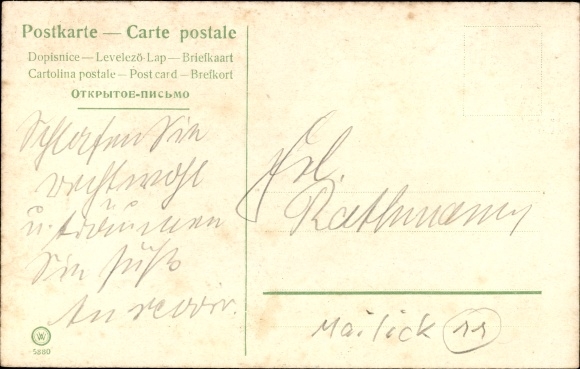 Postkarte — Carte postale
Dopisnice — Levelező-Lap — Briefkaart
Cartolina postale — Post card — Brefkort
Открытое-письмо
Schlafen Sie
recht wohl
u. träumen
Sie süß
Au revoir.
Frl.
Rathmann
Mailick 11
W
5880